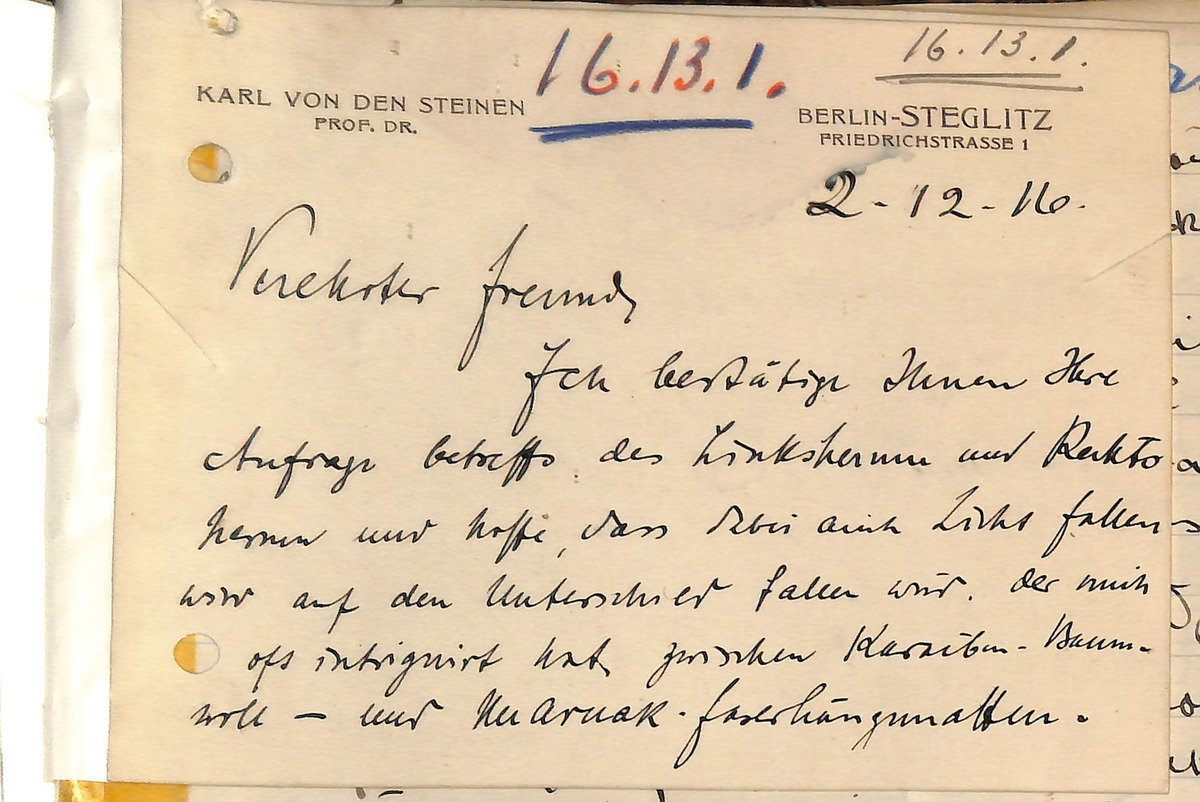 16.13.1.
16.13.1.
KARL VON DEN STEINEN
PROF. DR.
BERLIN-STEGLITZ
FRIEDRICHSTRASSE 1
2-12-16.
Verehrter Freund,
Ich bestätige Ihnen Ihre
Anfrage betreffs des Linksherum und Rechts
herum und hoffe, dass dabei auch Licht fallen
wird auf den Unterschied fallen wird, der mich
oft intriguirt hat, zwischen Karaiben-Baum-
woll – und Nu Aruak-Faserhängematten.